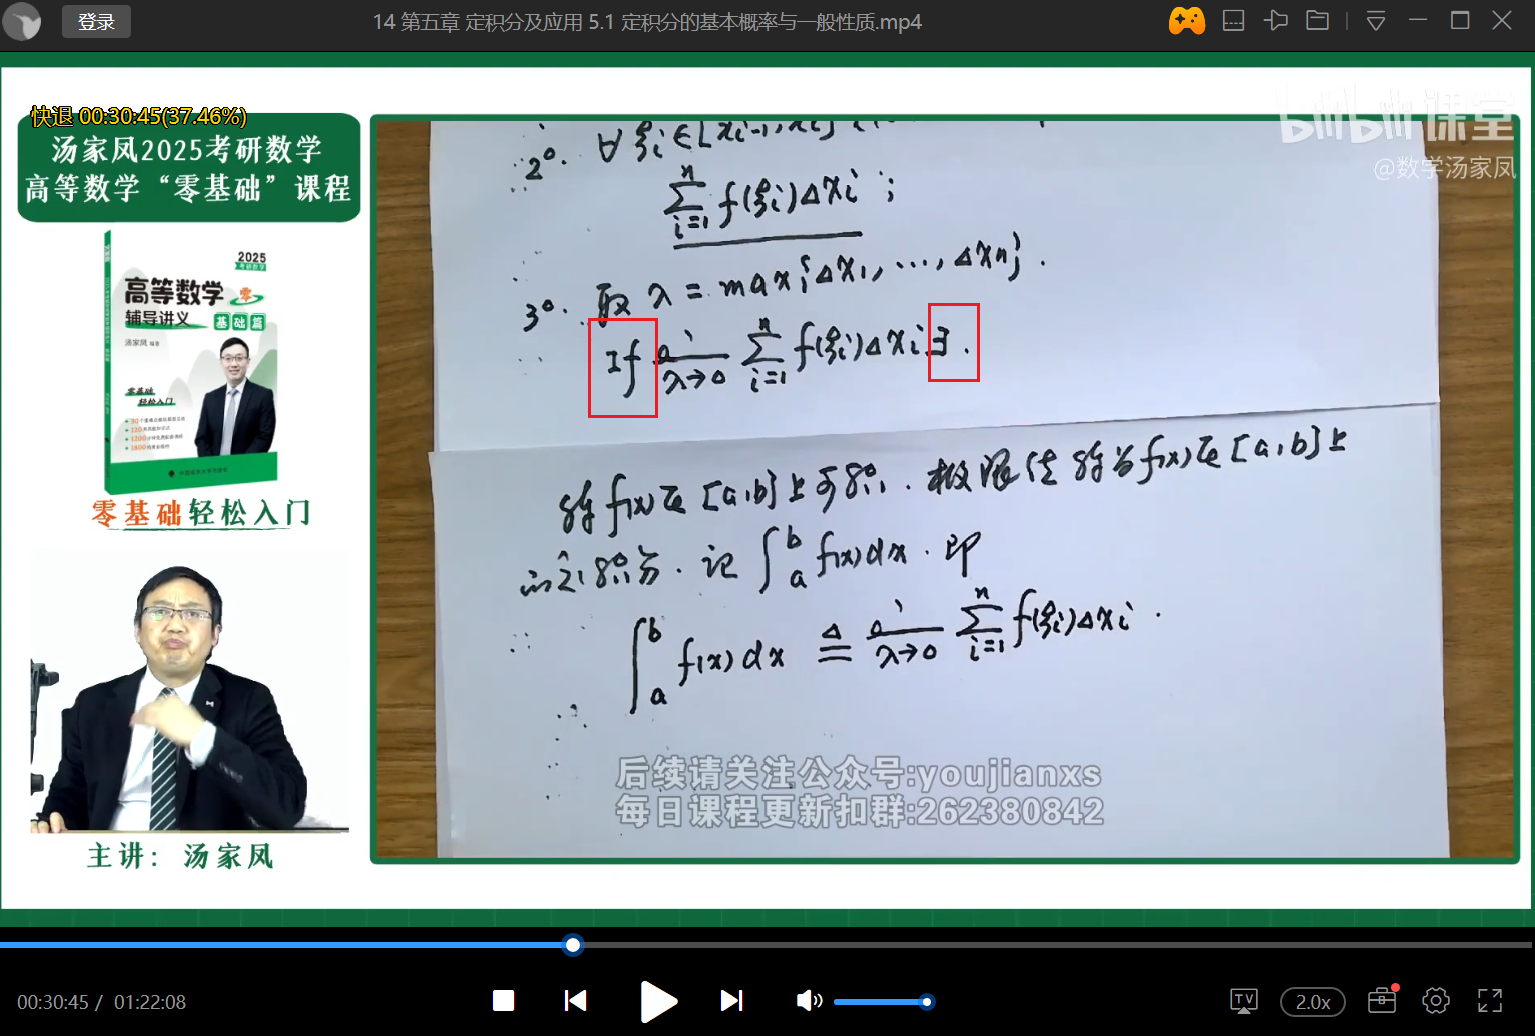 登录
14 第五章 定积分及应用 5.1 定积分的基本概率与一般性质.mp4
快退 00:30:45(37.46%)
汤家凤2025考研数学
高等数学“零基础”课程
2025
高等数学 零
辅导讲义 基础篇
汤家凤 编著
零基础
轻松入门
零基础轻松入门
主讲：汤家凤
bilibili课堂
@数学汤家凤
2°. ∀ ξi∈[xi-1,xi]
n∑i=1 f(ξi)Δxi ;
3°. 取 λ = max{Δx1, ..., Δxn}.
If lim λ→0 n∑i=1 f(ξi)Δxi ∃.
称 f(x) 在 [a,b] 上可积. 极限值称为 f(x) 在 [a,b] 上
的定积分. 记 ∫ b a f(x)dx. 即
∫ b a f(x)dx ≜ lim λ→0 n∑i=1 f(ξi)Δxi.
后续请关注公众号:youjianxs
每日课程更新扣群:262380842
00:30:45 / 01:22:08
TV
2.0x